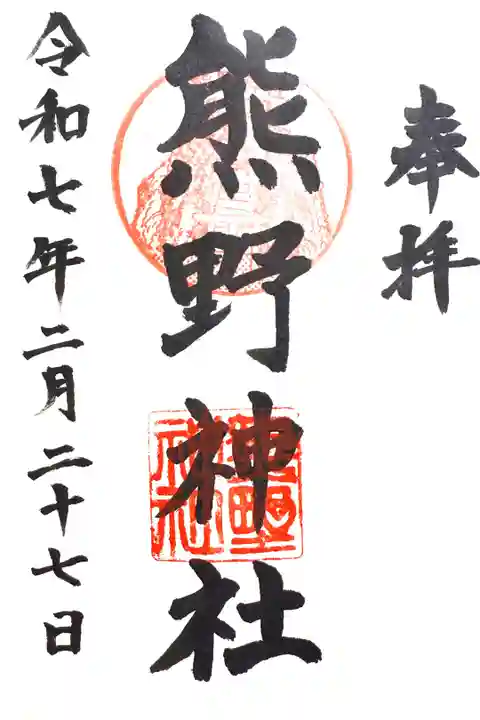 奉拝
熊野神社
令和七年二月二十七日